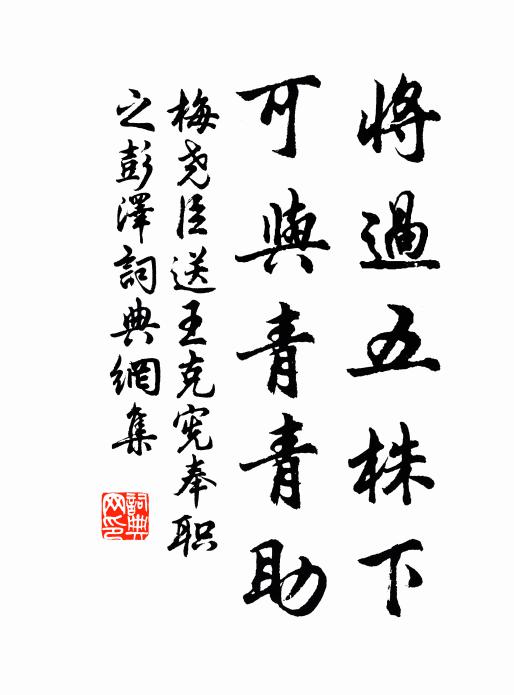 將過五株下
可與青青助
梅尧臣送王克宪奉职
之彭澤詞典網集
詞典网印